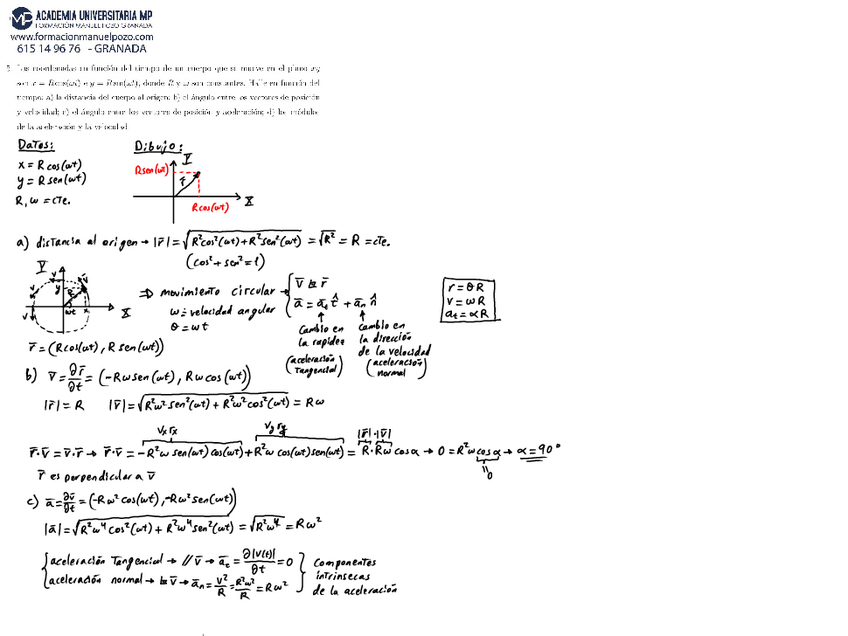 MP ACADEMIA UNIVERSITARIA MP
FORMACIÓN MANUEL POZO GRANADA
www.formacionmanuelpozo.com
615 14 96 76 - GRANADA
Las coordenadas en función del tiempo de un cuerpo que se mueve en el plano xy
son x = R cos(ωt) e y = R sen(ωt), donde R y ω son constantes. Halle en función del
tiempo: a) la distancia del cuerpo al origen; b) el ángulo entre los vectores de posición
y velocidad; c) el ángulo entre los vectores de posición y aceleración; d) los módulos
de la aceleración y la velocidad
Datos:
x = R cos(ωt)
y = R sen(ωt)
R, ω = cte.
Dibujo:
Y
R sen(ωt)
r̄
X
R cos(ωt)
a) distancia al origen → |r̄| = √(R²cos²(ωt) + R²sen²(ωt)) = √R² = R = cte.
(cos² + sen² = 1)
Y
X
ωt
⇒ movimiento circular → { v̄ ⊥ r̄
ā = ā_t t̂ + ā_n n̂
ω = velocidad angular
θ = ωt
cambio en la rapidez (aceleración tangencial)
cambio en la dirección de la velocidad (aceleración normal)
r = θR
v = ωR
a_t = αR
r̄ = (R cos(ωt), R sen(ωt))
b) v̄ = ∂r̄/∂t = (-Rω sen(ωt), Rω cos(ωt))
|r̄| = R |v̄| = √(R²ω² sen²(ωt) + R²ω² cos²(ωt)) = Rω
v_x r_x v_y r_y |r̄|·|v̄|
r̄·v̄ = v̄·r̄ → r̄·v̄ = -R²ω sen(ωt) cos(ωt) + R²ω cos(ωt) sen(ωt) = R·Rω cos α → 0 = R²ω cos α → α = 90°
0
r̄ es perpendicular a v̄
c) ā = ∂v̄/∂t = (-Rω² cos(ωt), -Rω² sen(ωt))
|ā| = √(R²ω⁴ cos²(ωt) + R²ω⁴ sen²(ωt)) = √(R²ω⁴) = Rω²
{ aceleración tangencial → // v̄ → ā_t = ∂|v(t)|/∂t = 0
aceleración normal → ⊥ v̄ → ā_n = v²/R = R²ω²/R = Rω² }
componentes
intrínsecas
de la aceleración